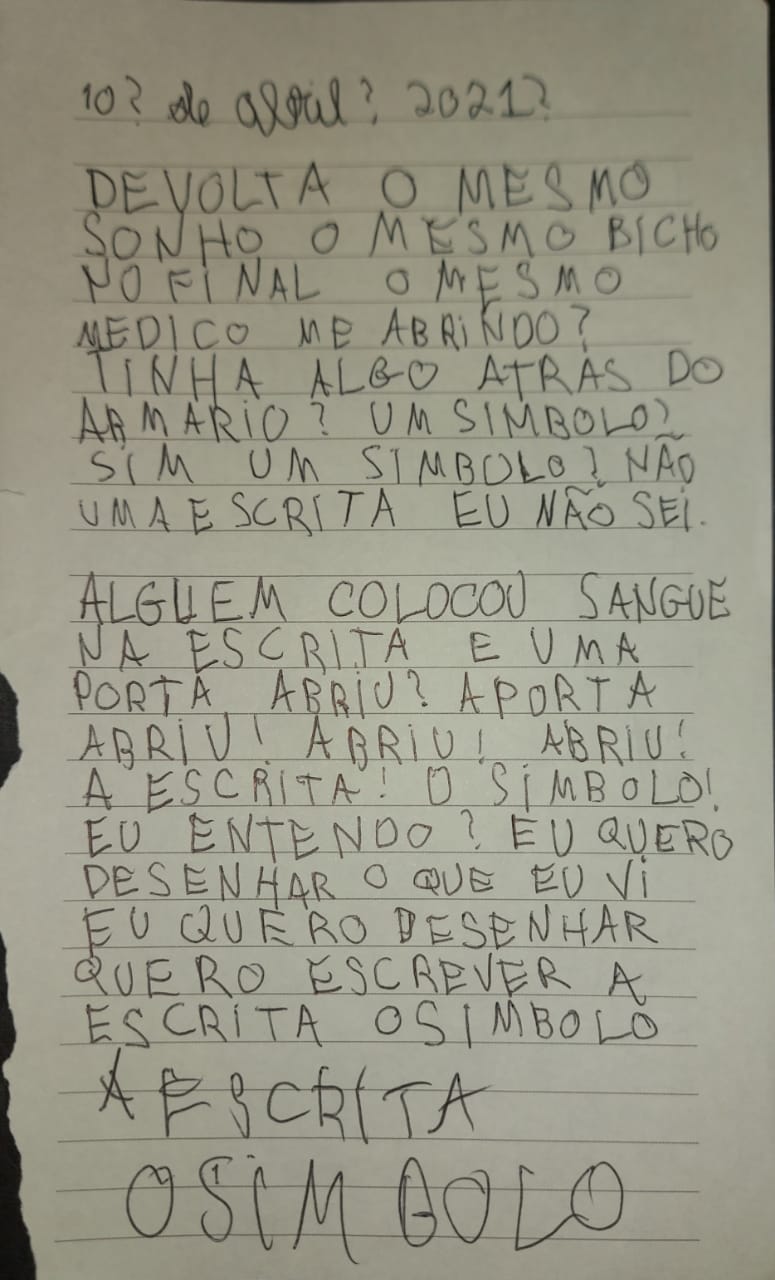 10? de abril? 2021?
DEVOLTA O MESMO
SONHO O MESMO BICHO
NO FINAL O MESMO
MEDICO ME ABRINDO?
TINHA ALGO ATRÁS DO
ARMARIO? UM SIMBOLO?
SIM UM SIMBOLO? NÃO
UMA ESCRITA EU NÃO SEI.
ALGUEM COLOCOU SANGUE
NA ESCRITA E UMA
PORTA ABRIU? APORTA
ABRIU! ABRIU! ABRIU!
A ESCRITA! O SIMBOLO!
EU ENTENDO? EU QUERO
DESENHAR O QUE EU VI
EU QUERO DESENHAR
QUERO ESCREVER A
ESCRITA O SIMBOLO
A ESCRITA
O SIMBOLO